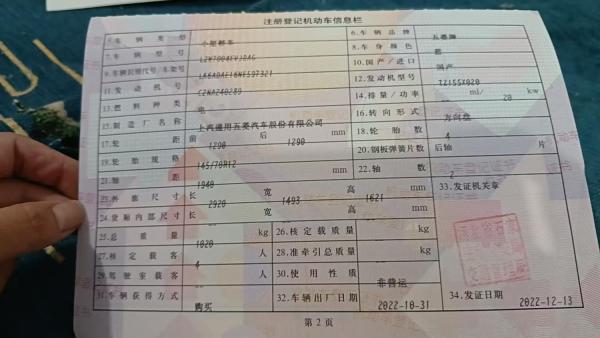 注册登记机动车信息栏
5.车辆类型 小型轿车 6.车辆品牌 五菱牌
7.车辆型号 LZW7004EVJDAG 8.车身颜色
9.车辆识别代号/车架号 10.国产/进口 国产
11.发动机号 CZNA240289 12.发动机型号 TZ155X020
13.燃料种类 电 14.排量/功率 ml/ 20 kw
15.制造厂名称 上汽通用五菱汽车股份有限公司 16.转向形式 方向盘
17.轮距 前 1290 后 1290 mm 18.轮胎数 4
19.轮胎规格 145/70R12 20.钢板弹簧片数 后轴 片
21.轴距 1940 mm 22.轴数 2
23.外廓尺寸 长 2920 宽 1493 高 1621 mm 33.发证机关章
24.货厢内部尺寸 长 宽 高 mm
25.总质量 1020 kg 26.核定载质量 kg
27.核定载客 4 人 28.准牵引总质量 kg
29.驾驶室载客 人 30.使用性质 非营运
31.车辆获得方式 购买 32.车辆出厂日期 2022-10-31 34.发证日期 2022-12-13
第2页